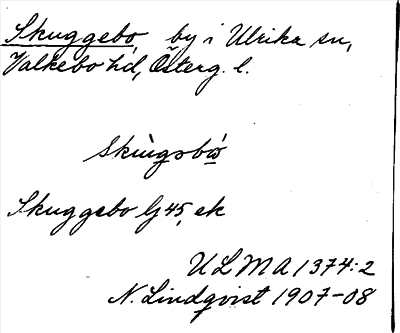 Skuggebo, by i Ulrika sn,
Valkebo hd, Österg. l.
skùgobò
Skuggebo G45, ek
ULMA 1374:2
N. Lindqvist 1907-08